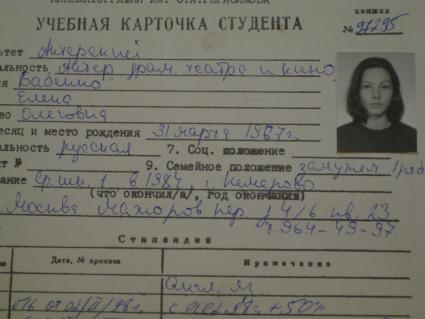 КИНЕМАТОГРАФИИ им. С.А.ГЕРАСИМОВА
книжка
УЧЕБНАЯ КАРТОЧКА СТУДЕНТА
№ 97295
ультет Актерский
альность Актер драм. театра и кино
ия Бабенко
Елена
во Олеговна
есяц и место рождения 31 марта 1967г.
альность русская 7. Соц. положение
т № 9. Семейное положение замужем 1 реб
ание Ср. шк. 1 в 1984 г. Кемерово
(что окончил/а/, год окончания)
Москва Мажоров пер. д 4/6 кв. 23
т. 964-49-97.
Стипендия
Дата, № приказа
Примечание
Англ. яз
+50%